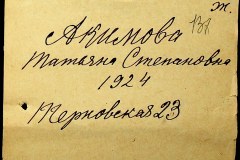 Ж.
138
Акимова
Татьяна Степановна
1924
Терновская 23